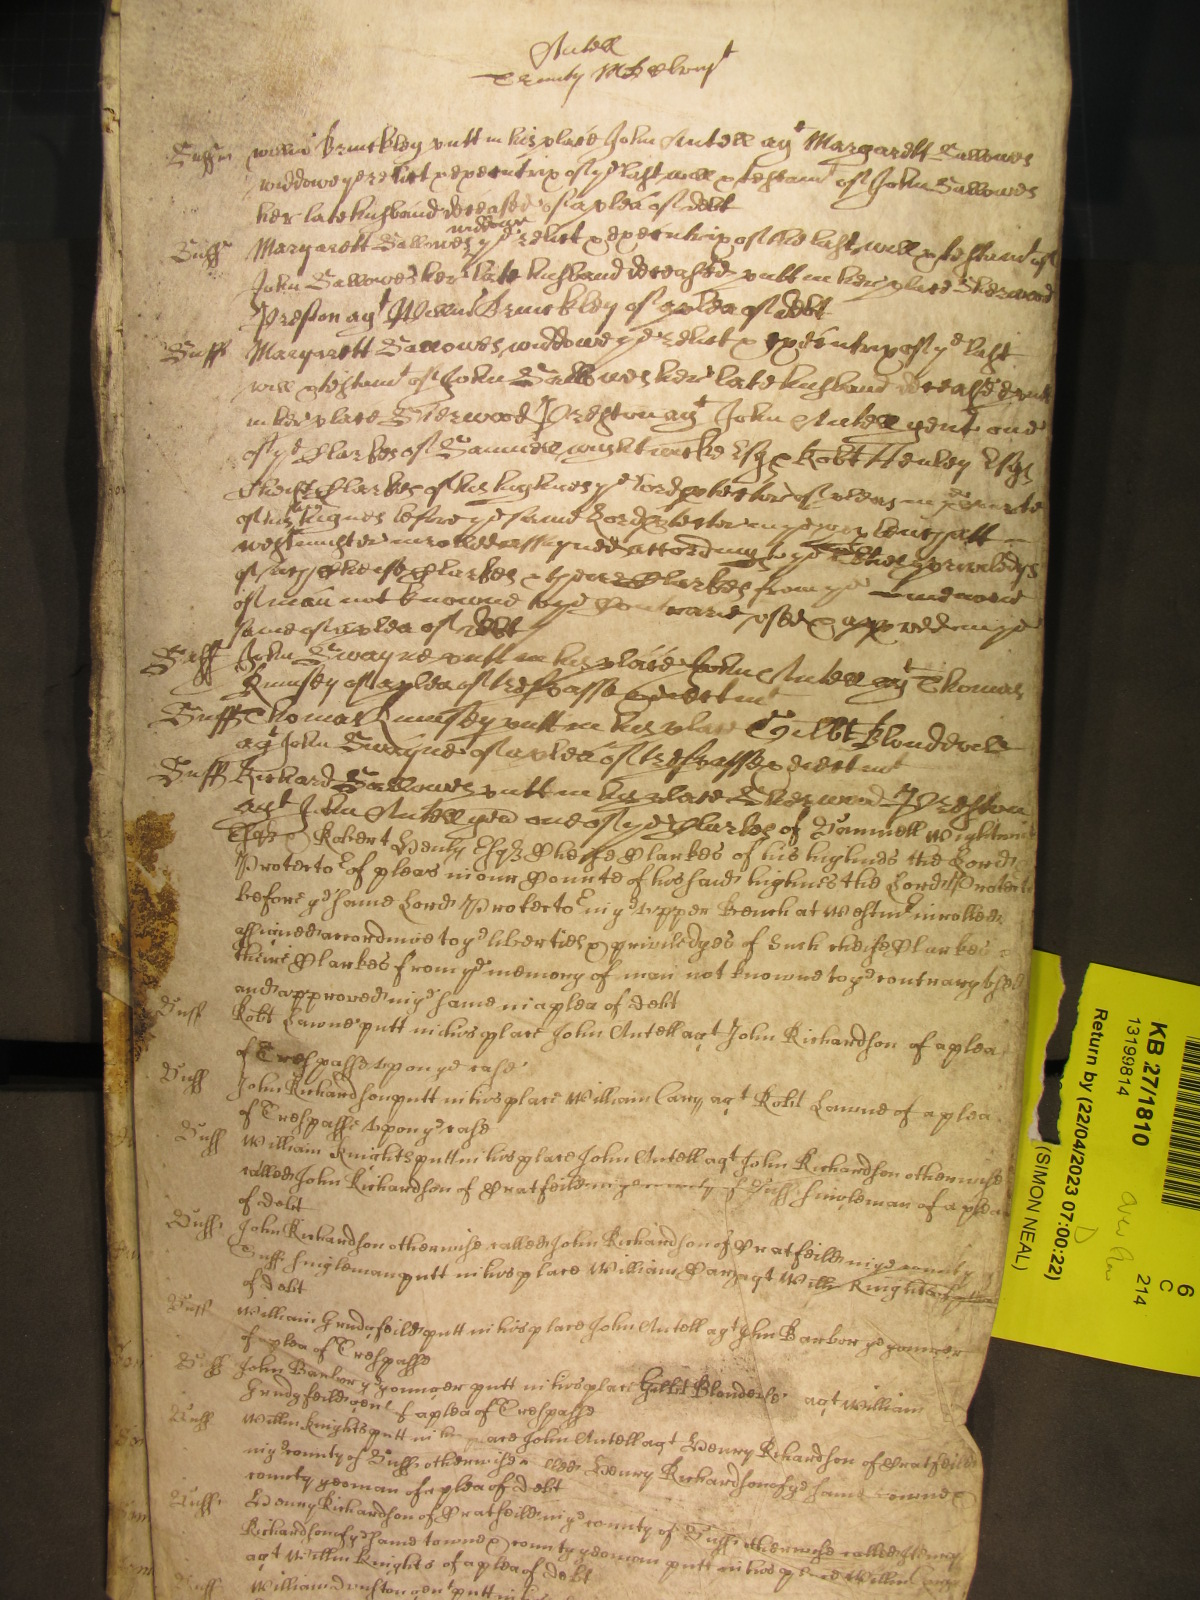 Antell
Trinity
Suff Willm Brinckley putt in his place John Antell agt Margarett Sallowes
widdowe ye relict & executrix of ye last will & testamt of John Sallowes
her late husband deceased of a plea of debt
widdowe
Suff Margarett Sallowes ye relict & executrix of the last will & testamt of
John Sallowes her late husband deceased putt in her place Sherwood
Preston agt Willm Brinckley of a plea of debt
Suff Margarett Sallowes widdowe ye relict & executrix of ye last
will & testamt of John Sallowes her late husband deceased putt
in her place Sherwood Preston agt John Antell gent one
of ye Clarkes of Samuell Wightwicke Esqr & Robt Henley Esqr
Cheife Clarkes of his highnes ye lord of pleas in ye Courte
of his highnes before ye same Lord
westminster inrolled assigned according to ye priviledges
of such cheife Clarkes & theire Clarkes from ye
of man not knowne to ye Contrarie used & approved in ye
same of a plea of debt
Suff John Swayne putt in his place John Antell agt Thomas
Rumsey of a plea of trespasse & eiectmt
Suff Thomas Rumsey putt in his place Gilbt Blondevile
agt John Swayne of a plea of trespasse & eiectmt
Suff Richard Sallowes putt in his place Sherwood Preston
agt John Antell gen one of ye Clarkes of Samuell
Esqr & Robert Henly Esqr Cheife Clarkes of his highnes the Lord
Protector of pleas in our Courte of his said highnes the Lord Protector
before ye same Lord Protector in ye upper Bench at Westmr inrolled
assigned accordinge to ye liberties & priviledges of such cheife Clarkes
theire Clarkes from ye memory of man not knowne to ye contrary used
and approved in ye same in a plea of debt
Suff Robt Lawne putt in his place John Antell agt John Richardson of a plea
of Trespasse upon ye case
Suff John Richardson putt in his place William Cary agt Robt Lawne of a plea
of Trespasse upon ye case
Suff William Knights putt in his place John Antell agt John Richardson otherwise
called John Richardson of Cratfeild in ye county of Suff singleman of a plea
of debt
Suff John Richardson otherwise called John Richardson of Cratfeild in ye county
Suff singleman putt in his place William Cary agt Willm Knights
of debt
Suff William Grudgfeild putt in his place John Antell agt John Barbor ye younger
of a plea of Trespasse
Suff John Barbor ye younger putt in his place Gilbt Blondevile agt William
Grudgfeild gent of a plea of Trespasse
Suff Willm Knights putt in his place John Antell agt Henry Richardson of Cratfeild
in ye county of Suff otherwise called Henry Richardson of ye same towne &
county yeoman of a plea of debt
Suff Henry Richardson of Cratfeild in ye county of Suff otherwise called Henry
Richardson of ye same towne & county yeoman putt in his place Willm Cary
agt Willm Knights of a plea of debt
Suff William gent putt in his
KB 27/1810
13199814
Return by (22/04/2023 07:00:22)
(SIMON NEAL)
6
C
214
D